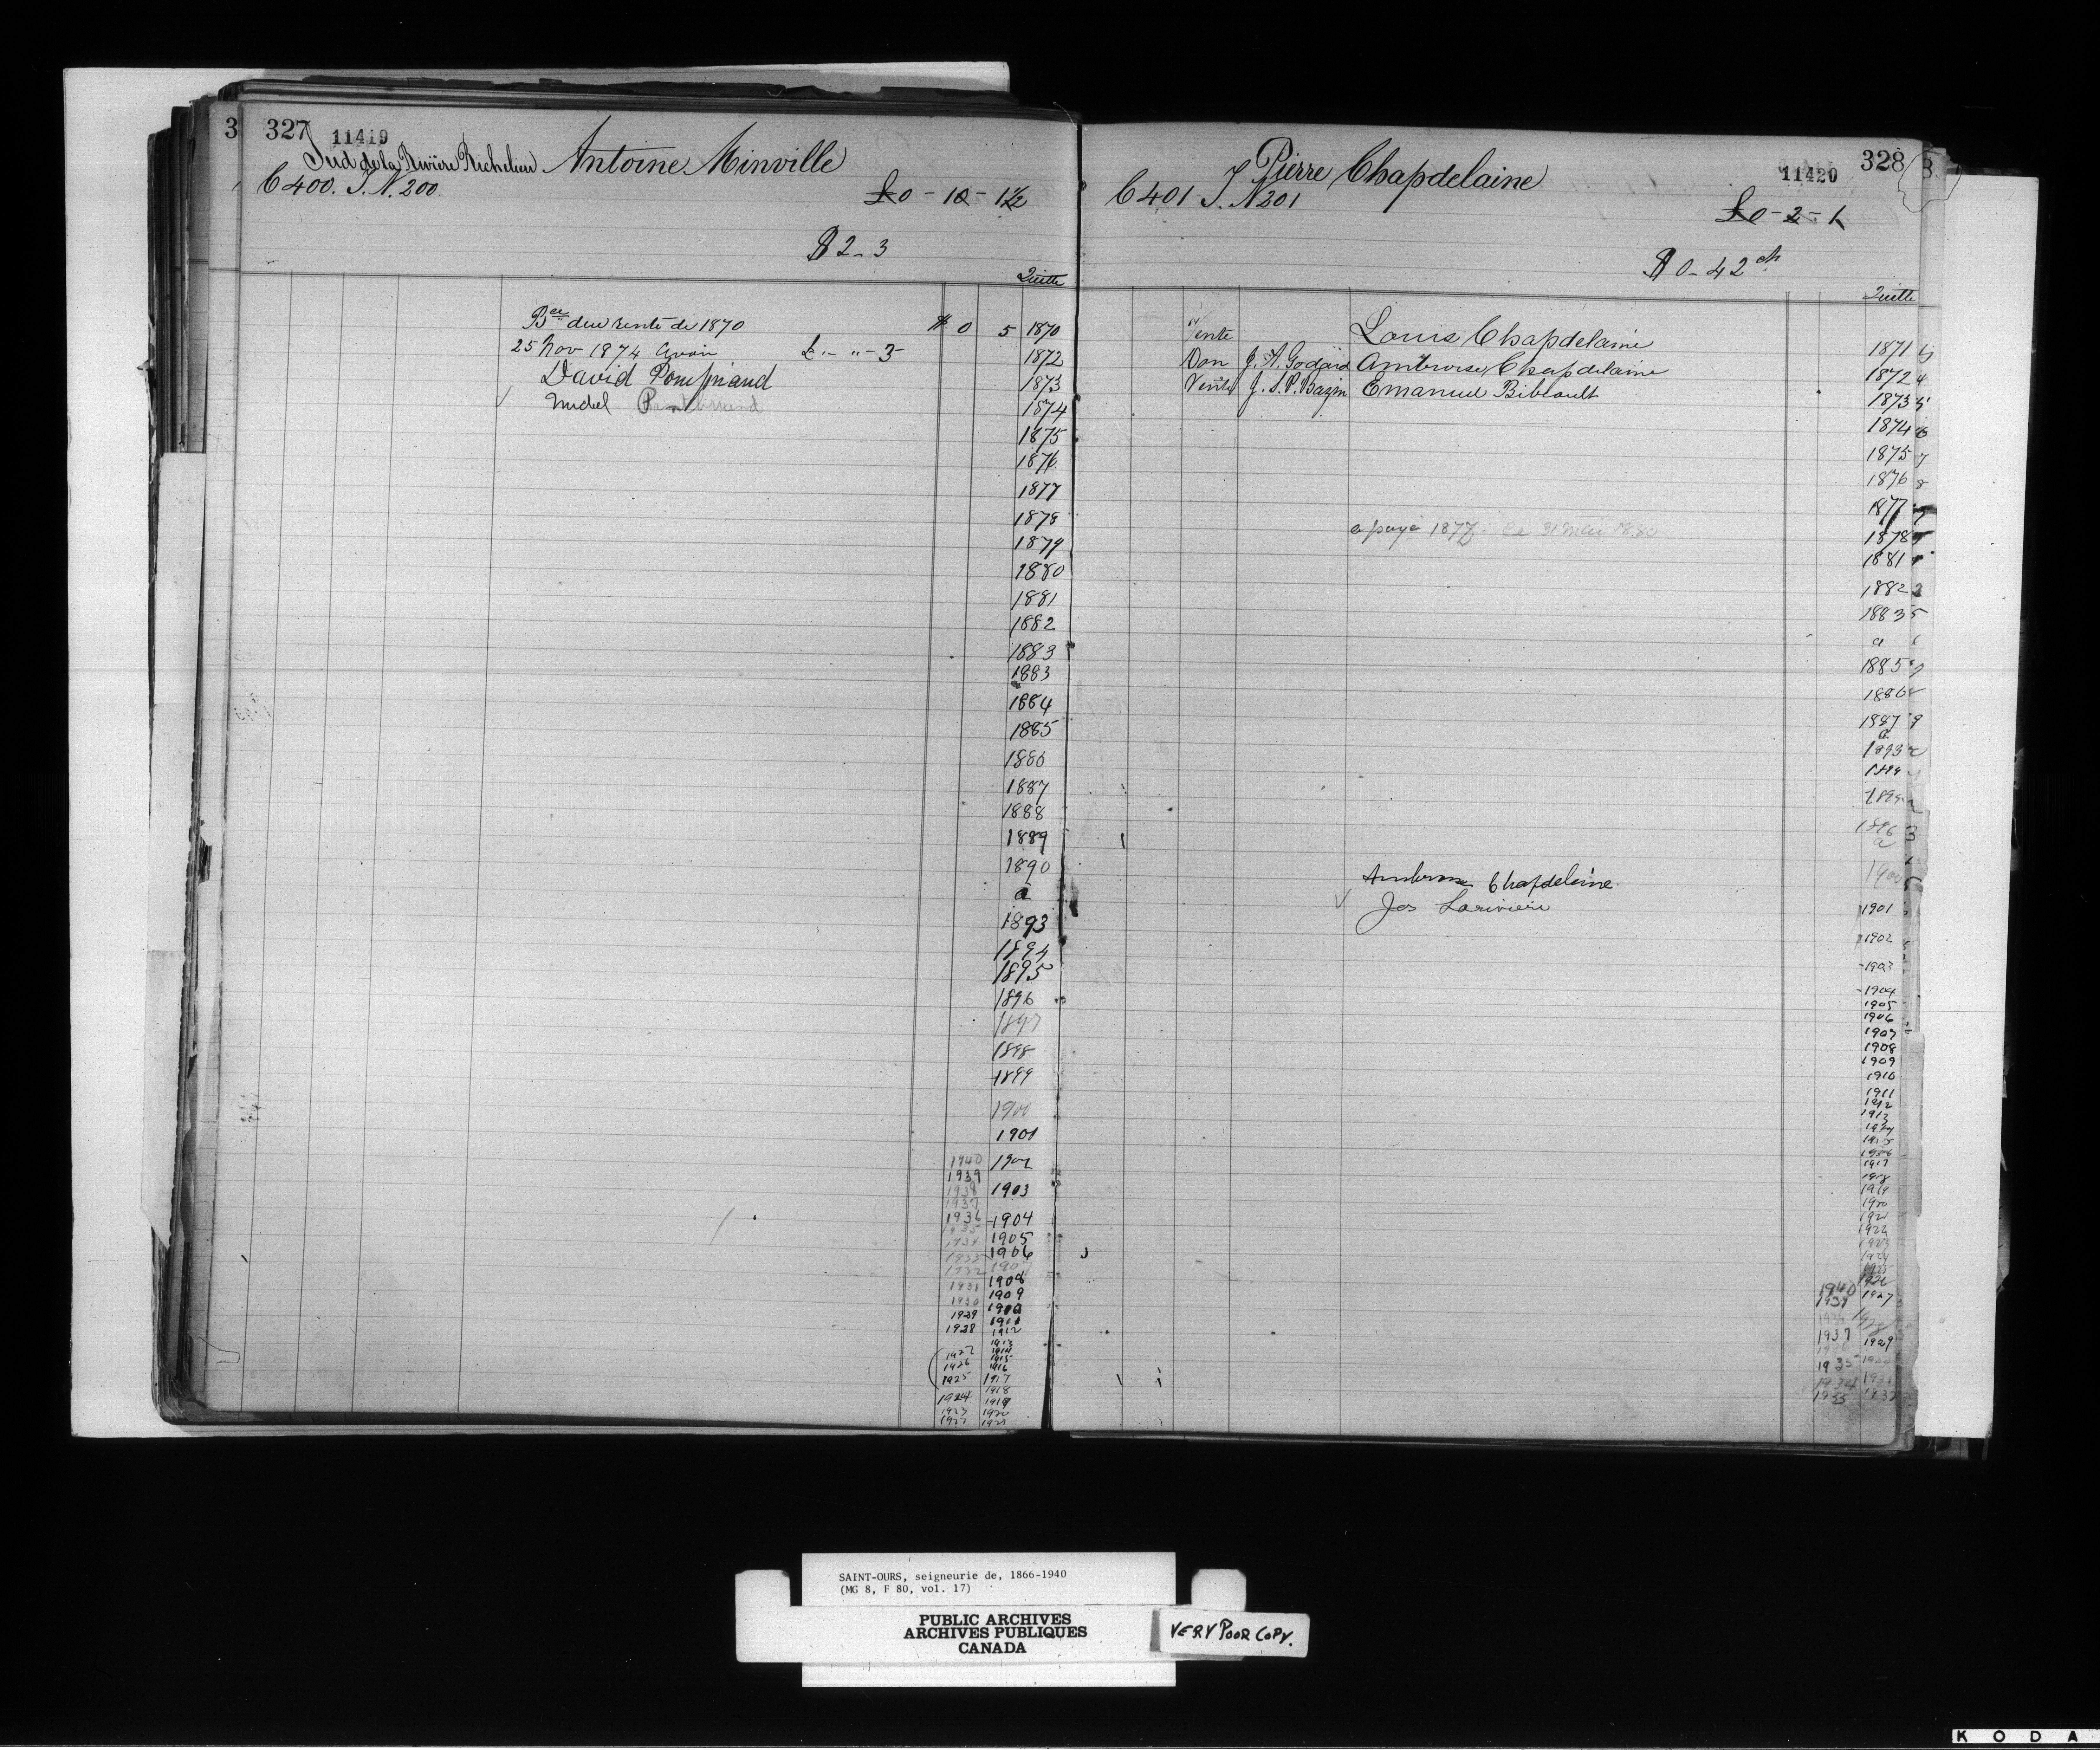 3 327 11419
Sud de la Rivière Richelieu Antoine Minville
C 400. T. N. 200.
£0 - 10 - 1½
$ 2 - 3
Quitte
Bce due rente de 1870 $ 0 5 1870
25 Nov 1874 Avoir £ " - " - 3 - 1872
David 1873
Michel 1874
1875
1876
1877
1878
1879
1880
1881
1882
1883
1883
1884
1885
1886
1887
1888
1889
1890
a
1893
1894
1895
1896
1897
1898
1899
1900
1901
1940 1902
1939
1938 1903
1937
1936 1904
1935
1934 1905
1933 1906
1932 1907
1931 1908
1930 1909
1929 1910
1928 1911
1912
1913
1927 1914
1926 1915
1916
1925 1917
1918
1924 1919
1923 1920
1922 1921
Pierre Chapdelaine 11420 328
C 401 T. N 201
£0 - 2 - 1
$ 0 - 42 cts
Quitte
Vente Louis Chapdelaine 1871
Don J. A. Godard Ambroise Chapdelaine 1872
Vente J. S. P. Bazin Emanuel Bibeault 1873
1874
1875
1876
1877
a payé 1877. Ce 31 Mai 1880
1878
1881
1882
1883
a
1885
1886
1887
a
1893
1894
1895
1896
a
Ambroise Chapdelaine 1900
Jos Lariviere 1901
1902
1903
1904
1905
1906
1907
1908
1909
1910
1911
1912
1913
1914
1915
1916
1917
1918
1919
1920
1921
1922
1923
1924
1925
1926
1940 1927
1939
1928
1937 1929
1935
1934 1931
1933 1932
SAINT-OURS, seigneurie de, 1866-1940
(MG 8, F 80, vol. 17)
PUBLIC ARCHIVES
ARCHIVES PUBLIQUES
CANADA
VERY POOR COPY.
K O D A